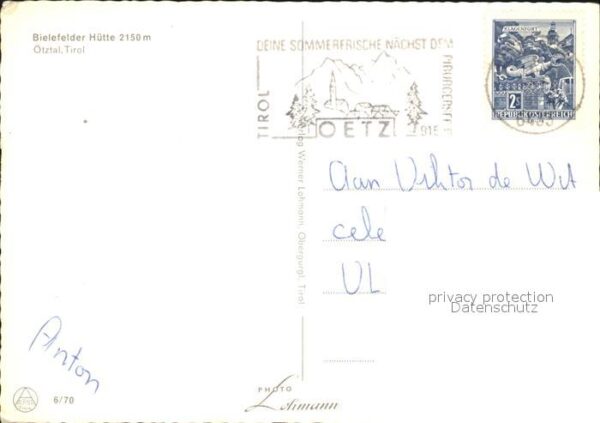 Bielefelder Hütte 2150 m
Ötztal, Tirol
DEINE SOMMERFRISCHE NÄCHST DEM
TIROL
OETZ
KLAGENFURT
2S
REPUBLIK ÖSTERREICH
Verlag Werner Lohmann, Obergurgl, Tirol
Aan Viktor de Wit
cele
VL
privacy protection
Datenschutz
Anton
6/70
PHOTO
Lohmann